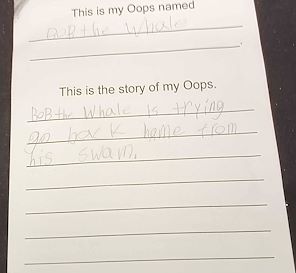 This is my Oops named
BOB the Whale
This is the story of my Oops.
BOB the Whale is trying
go back home from
his swam.